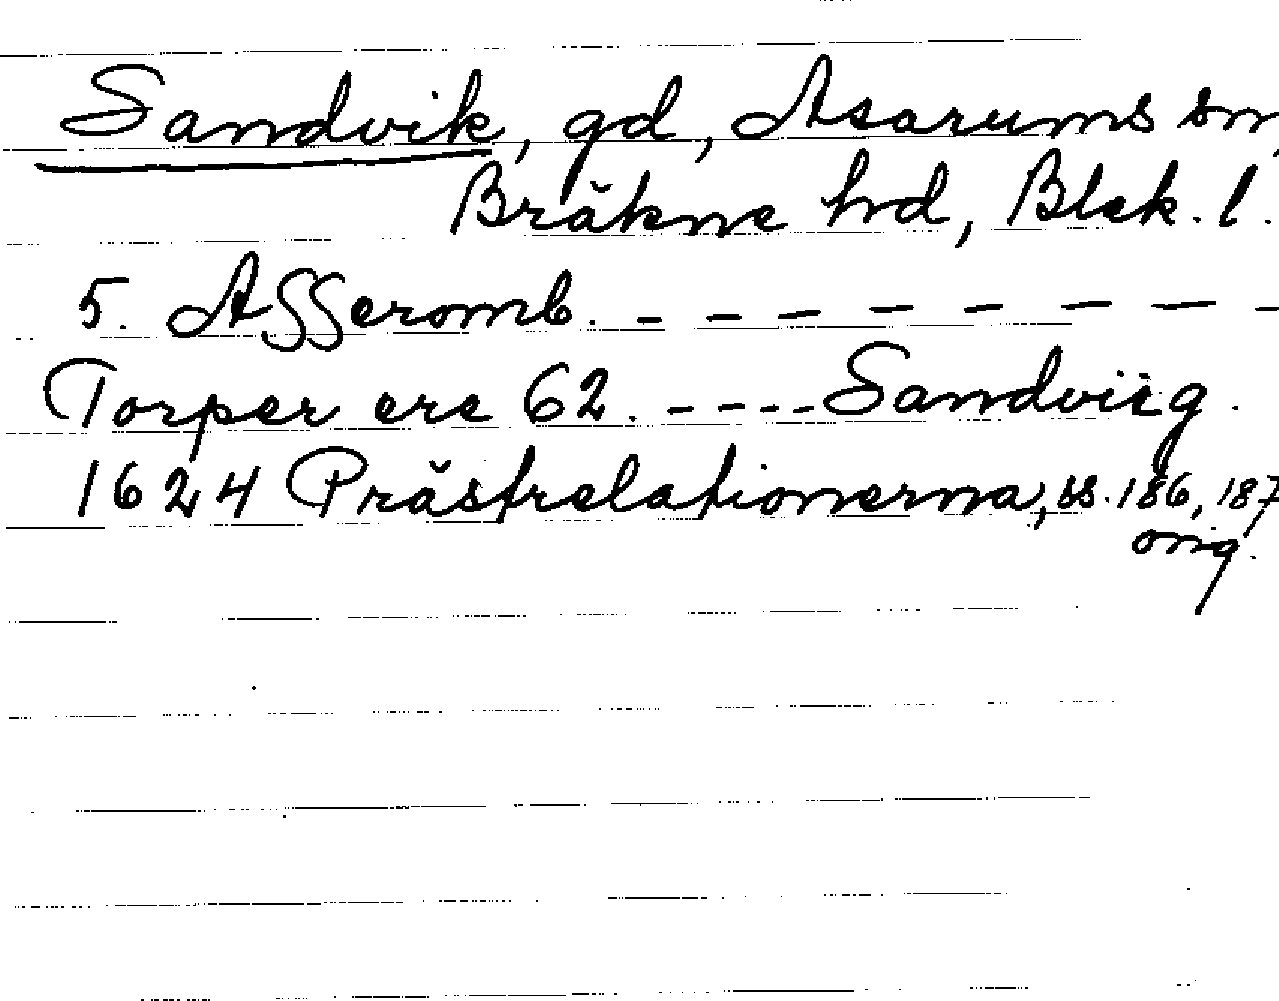 Sandvik, gd, Asarums sn,
Bräkne hd, Blek. l.
5. Asseromb. - - - - - - - -
Torper ere 62. - - - - Sandviig.
1624 Prästrelationerna, ss. 186, 187
orig.